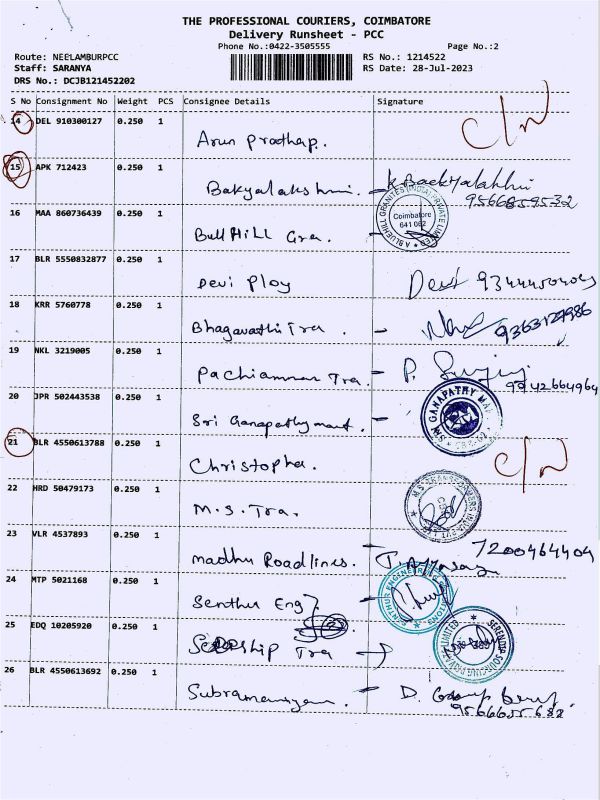 THE PROFESSIONAL COURIERS, COIMBATORE
Delivery Runsheet - PCC
Phone No.:0422-3505555 Page No.:2
Route: NEELAMBURPCC RS No.: 1214522
Staff: SARANYA RS Date: 28-Jul-2023
DRS No.: DCJB121452202
S No Consignment No Weight PCS Consignee Details Signature
14 DEL 910300127 0.250 1 C/N
Arun Prathap.
15 APK 712423 0.250 1
Bakyalakshmi. - K. 9566859532
16 MAA 860736439 0.250 1 Coimbatore 641 062
Bull Hill Gra.
17 BLR 5550832877 0.250 1
Devi Ploy Devi
18 KRR 5760778 0.250 1
Bhagavathi Tra. - 9363127986
19 NKL 3219005 0.250 1
Pachiamman Tra. - P. 9942664964
20 JPR 502443538 0.250 1 GANAPATHY
Sri Ganapathy mart. -
21 BLR 4550613788 0.250 1 C/N
Christopher.
22 HRD 50479173 0.250 1
M.S. Tra.
23 VLR 4537893 0.250 1 7200464404
Madhu Roadlines. -
24 MTP 5021168 0.250 1
Senthur Eng -
25 EDQ 10205920 0.250 1
ship Tra
26 BLR 4550613692 0.250 1
Subramaniyam. - D. 9566655632